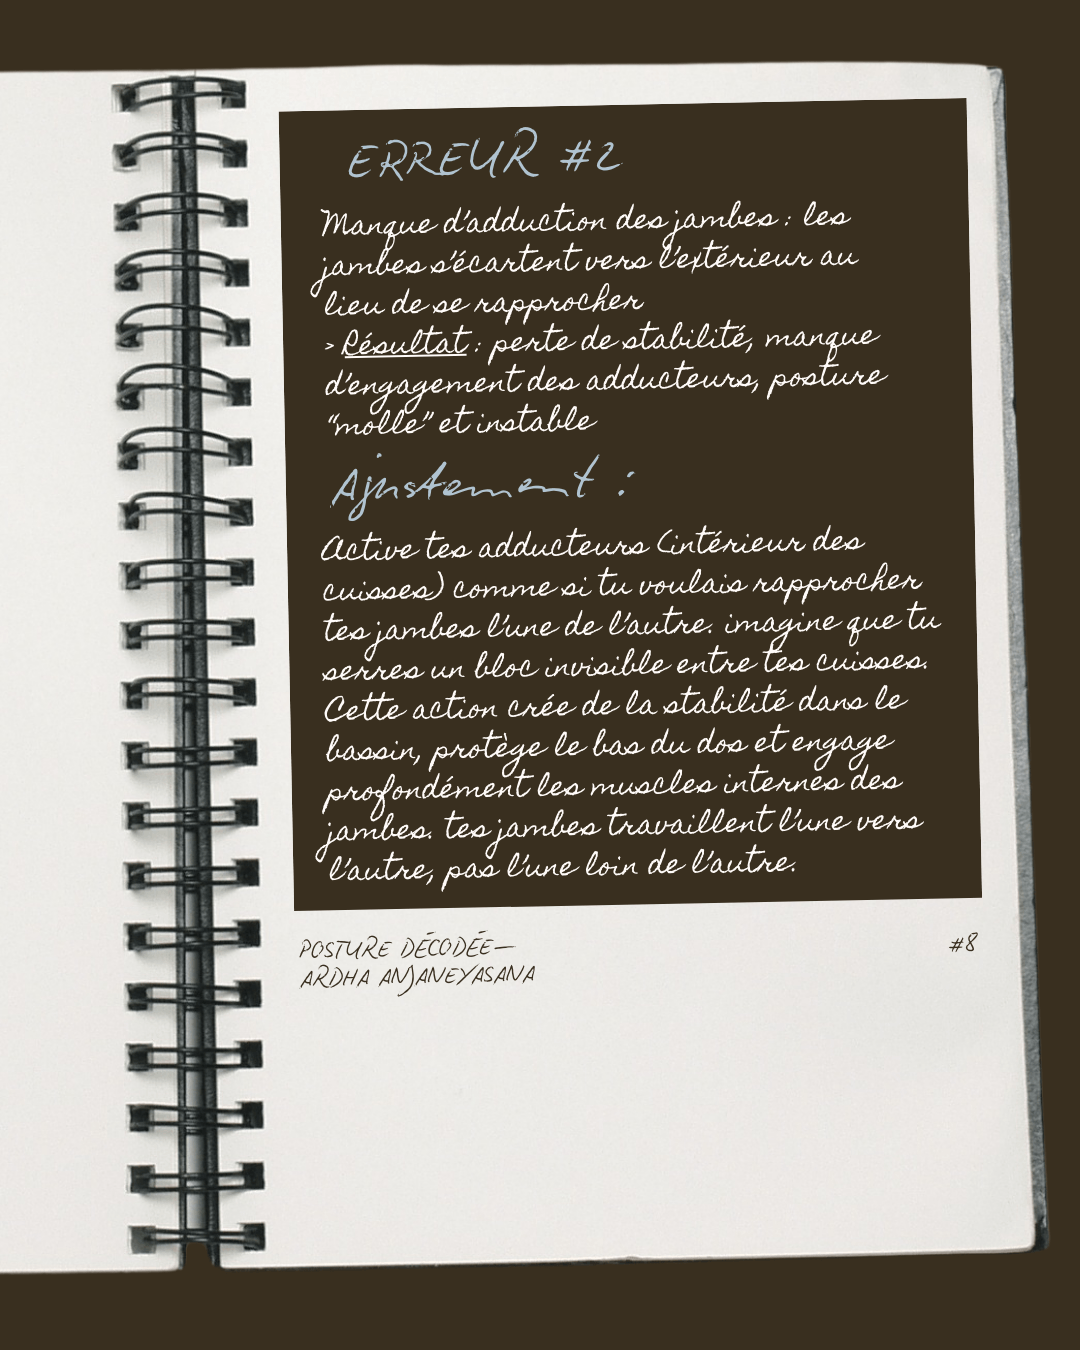 ERREUR #2
Manque d'adduction des jambes : les
jambes s'écartent vers l'extérieur au
lieu de se rapprocher
> Résultat : perte de stabilité, manque
d'engagement des adducteurs, posture
"molle" et instable
Ajustement :
Active tes adducteurs (intérieur des
cuisses) comme si tu voulais rapprocher
tes jambes l'une de l'autre. imagine que tu
serres un bloc invisible entre tes cuisses.
Cette action crée de la stabilité dans le
bassin, protège le bas du dos et engage
profondément les muscles internes des
jambes. tes jambes travaillent l'une vers
l'autre, pas l'une loin de l'autre.
POSTURE DÉCODÉE—
ARDHA ANJANEYASANA
#8